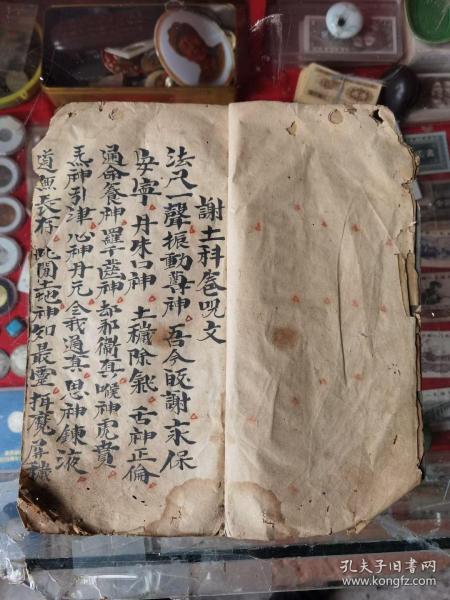 謝土科呪文
法尺一聲振動尊神吾今謝求保
安寧丹朱口神土穢除氛舌神正倫
通命養神羅千齒神却邪衛真喉神虎賁
炁神引津心神丹元令我通真思神鍊液
道炁長存此間土地神知最靈
孔夫子旧书网
www.kongfz.com